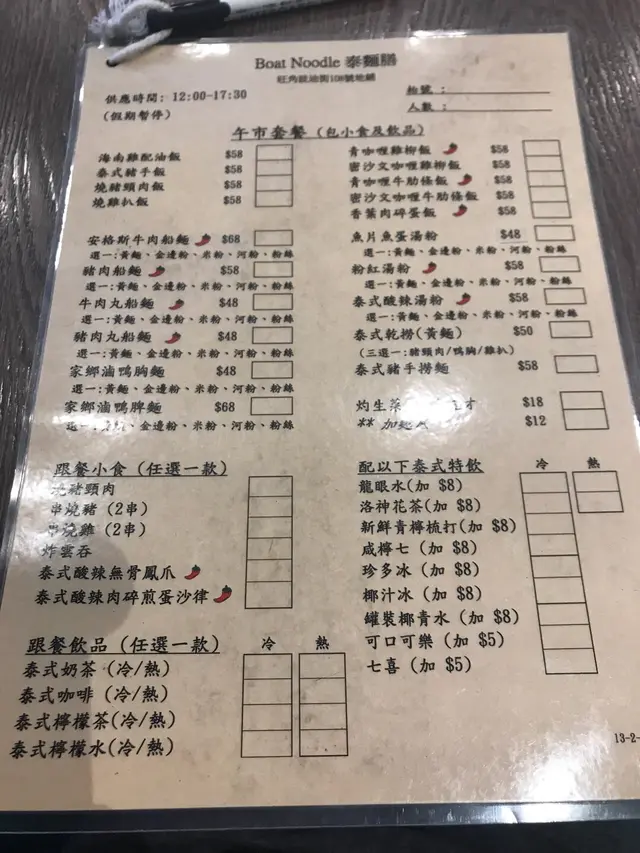 Boat Noodle 泰麵膳
旺角砵蘭街108號地鋪
供應時間: 12:00-17:30
(假期暫停)
枱號 :
人數 :
午市套餐 (包小食及飲品)
海南雞配油飯 $58
泰式豬手飯 $58
燒豬頸肉飯 $58
燒雞扒飯 $58
安格斯牛肉船麵 $68
選一:黃麵、金邊粉、米粉、河粉、粉絲
豬肉船麵 $58
選一:黃麵、金邊粉、米粉、河粉、粉絲
牛肉丸船麵 $48
選一:黃麵、金邊粉、米粉、河粉、粉絲
豬肉丸船麵 $48
選一:黃麵、金邊粉、米粉、河粉、粉絲
家鄉滷鴨胸麵 $48
選一:黃麵、金邊粉、米粉、河粉、粉絲
家鄉滷鴨脾麵 $68
選一:黃麵、金邊粉、米粉、河粉、粉絲
青咖喱雞柳飯 $58
密沙文咖喱雞柳飯 $58
青咖喱牛肋條飯 $58
密沙文咖喱牛肋條飯 $58
香葉肉碎蛋飯 $58
魚片魚蛋湯粉 $48
選一:黃麵、金邊粉、米粉、河粉、粉絲
粉紅湯粉 $58
選一:黃麵、金邊粉、米粉、河粉、粉絲
泰式酸辣湯粉 $58
選一:黃麵、金邊粉、米粉、河粉、粉絲
泰式乾撈(黃麵) $50
(三選一:豬頸肉/鴨胸/雞扒)
泰式豬手撈麵 $58
灼生菜 $18
** 加麵 $12
跟餐小食 (任選一款)
燒豬頸肉
串燒豬 (2串)
串燒雞 (2串)
炸雲吞
泰式酸辣無骨鳳爪
泰式酸辣肉碎煎蛋沙律
跟餐飲品 (任選一款) 冷 熱
泰式奶茶 (冷/熱)
泰式咖啡 (冷/熱)
泰式檸檬茶(冷/熱)
泰式檸檬水(冷/熱)
配以下泰式特飲 冷 熱
龍眼水(加 $8)
洛神花茶(加 $8)
新鮮青檸梳打(加 $8)
咸檸七 (加 $8)
珍多冰 (加 $8)
椰汁冰 (加 $8)
罐裝椰青水 (加 $8)
可口可樂 (加 $5)
七喜 (加 $5)
13-2-